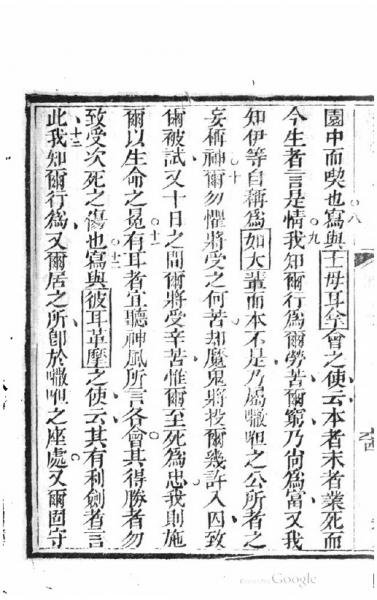 園中而喫也八寫與士每耳拿會之使云本者末者業死而
今生者言是情九我知爾行爲爾勞苦爾窮乃尚爲富又我
知伊等自稱爲如大輩而本不是乃屬𠵽呾之公所者之
妄稱神十爾勿懼將受之何苦却魔鬼將投爾幾許入囚致
爾被試又十日之間爾將受辛苦惟爾至死爲忠我則施
爾以生命之冕十一有耳者宜聽神風所言各會其得勝者勿
致受次死之傷也十二寫與彼耳革摩之使云其有利劍者言
此十三我知爾行爲又爾居之所卽於𠵽呾之座處又爾固守
Google